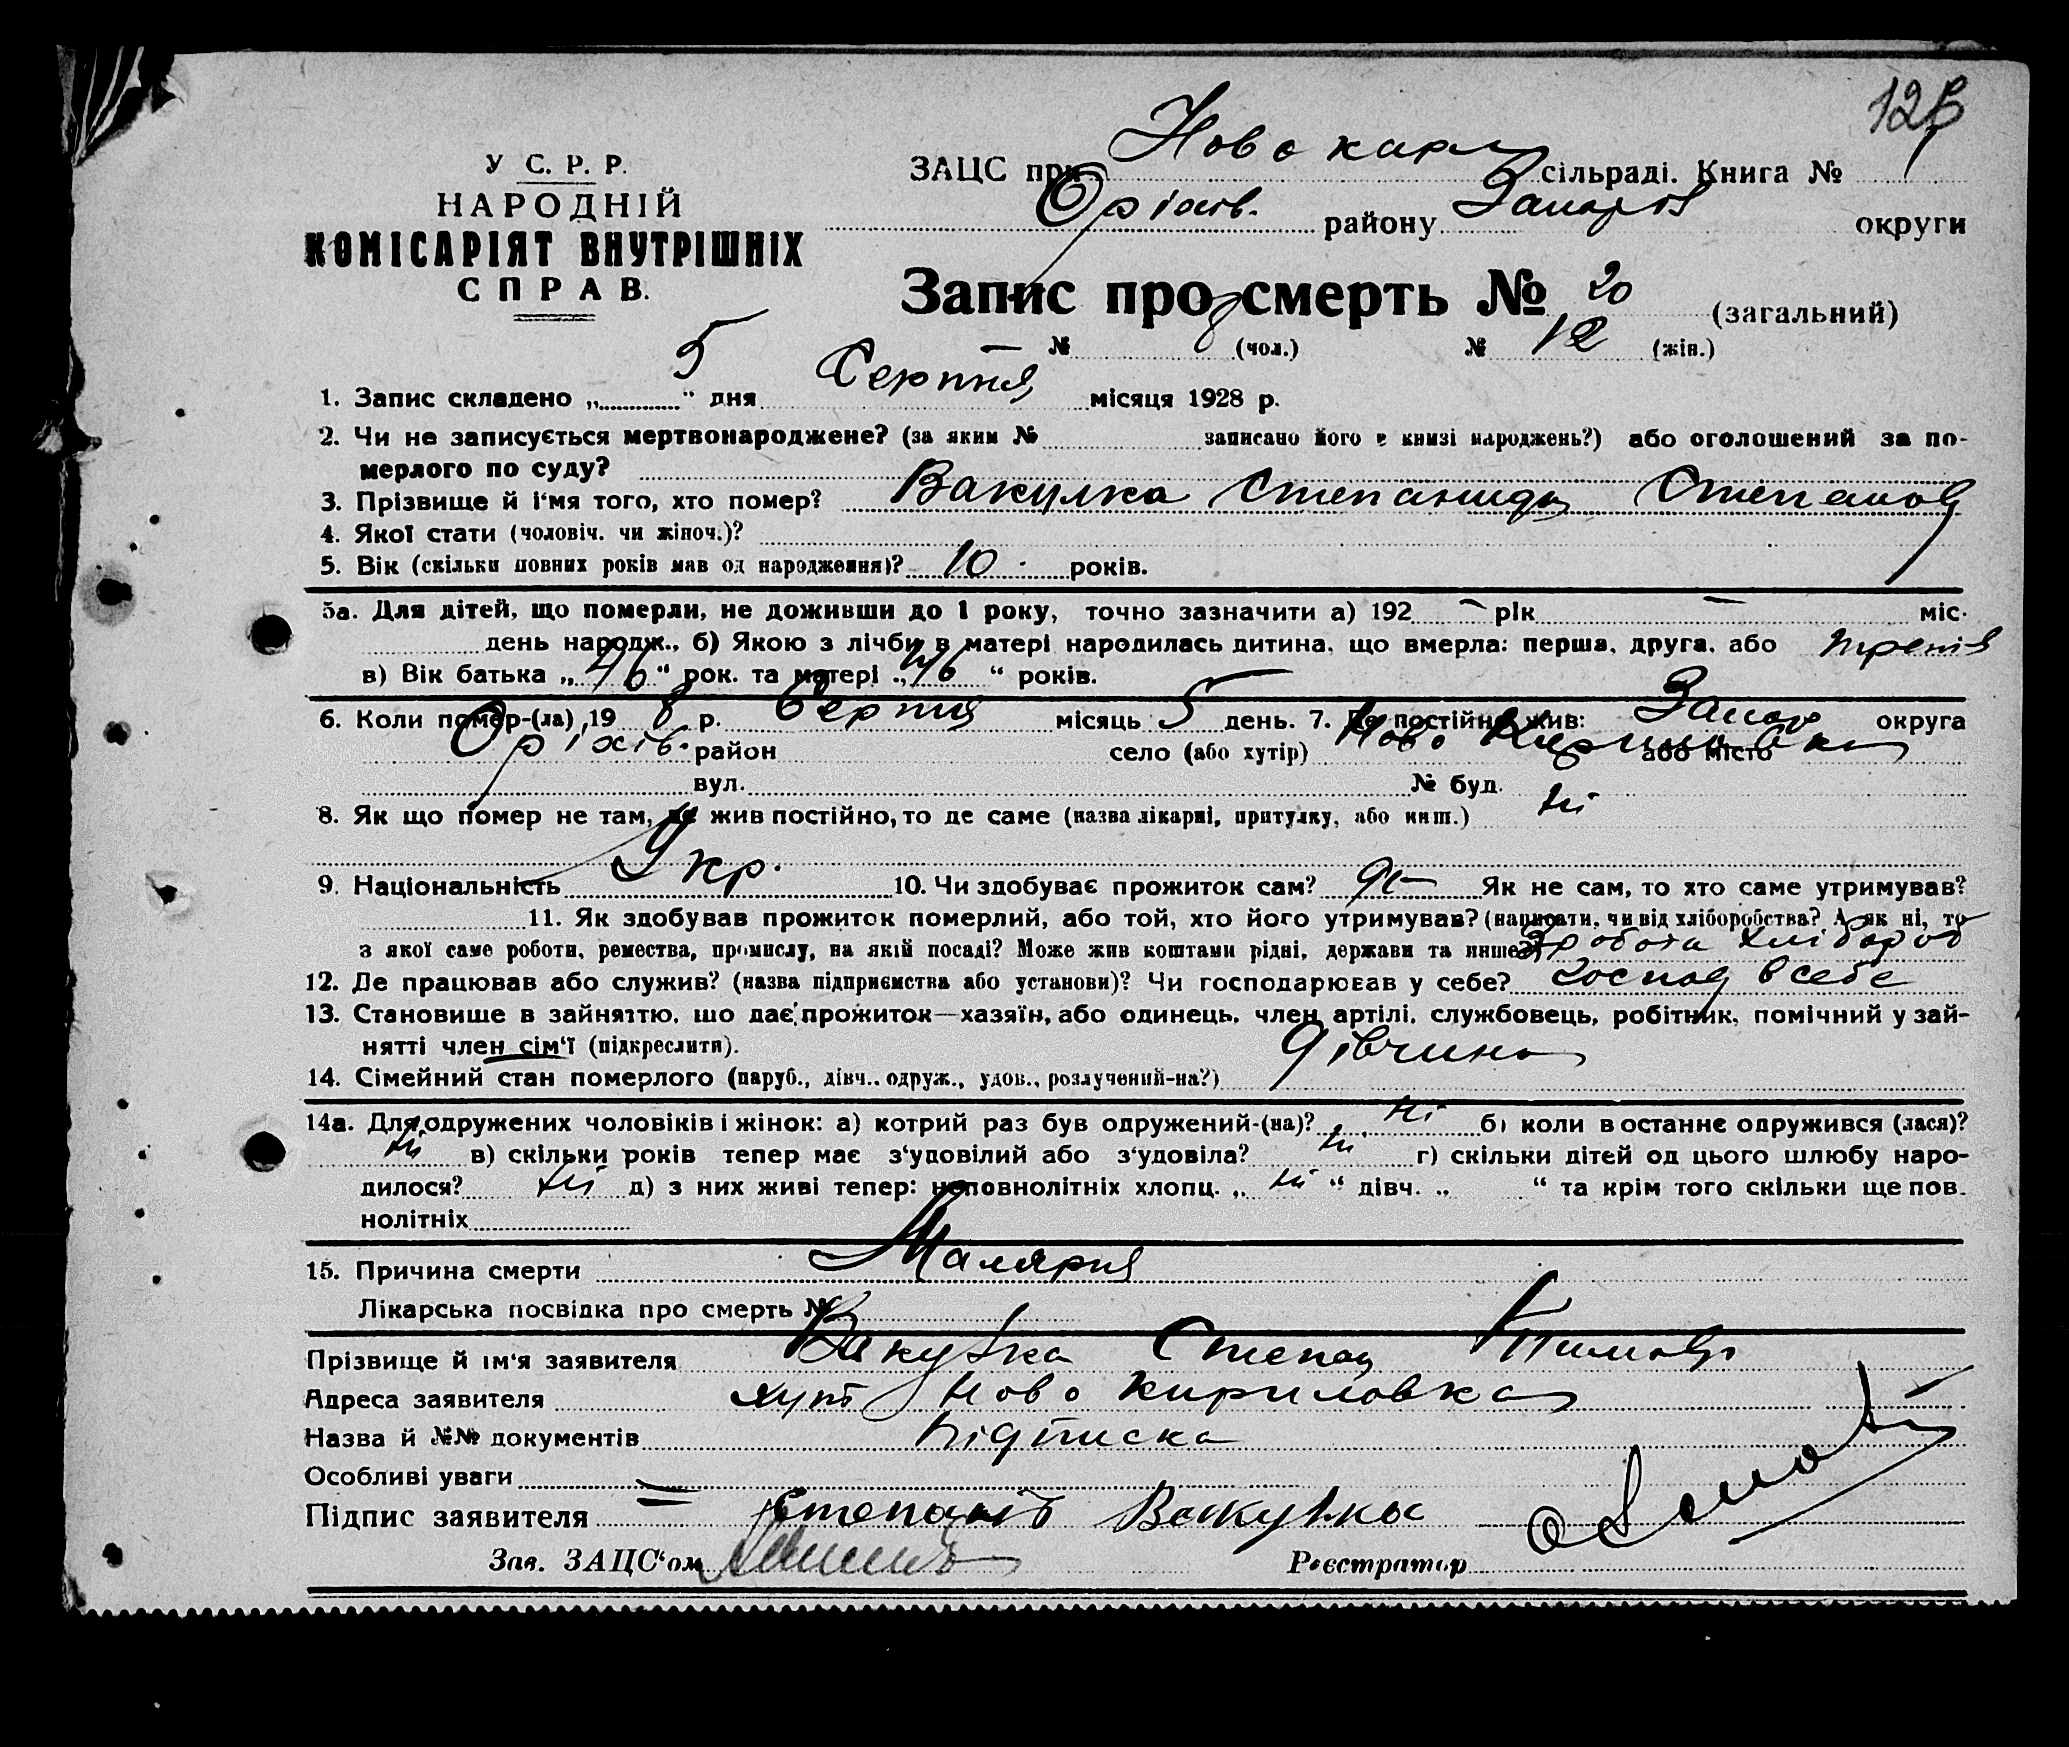 У С. Р. Р.
НАРОДНІЙ
КОМІСАРІЯТ ВНУТРІШНІХ
СПРАВ.
ЗАЦС при Ново сільраді. Книга № 1
Оріхів. району Запоріз округи
Запис про смерть № 20 (загальний)
№ 8 (чол.) № 12 (жін.)
1. Запис складено „ 5 “ дня Серпня місяця 1928 р.
2. Чи не записується мертвонароджене? (за яким № записано його в книзі народжень?) або оголошений за по-
мерлого по суду?
3. Прізвище й і‘мя того, хто помер? Вакулка Степанида Степанов
4. Якої стати (чоловіч. чи жіноч.)?
5. Вік (скільки повних років мав од народження)? 10 років.
5а. Для дітей, що померли, не доживши до 1 року, точно зазначити а) 192 — рік — міс.
день народж., б) Якою з лічби в матері народилась дитина, що вмерла: перша, друга, або третя
в) Вік батька „ 46 “ рок. та матері „ 46 “ років.
6. Коли помер-(ла) 19 8 р. Серпня місяць 5 день. 7. Де постійно жив: Запор округа
Оріхів. район село (або хутір) Ново Кирилівка або місто
вул. № буд.
8. Як що помер не там, де жив постійно, то де саме (назва лікарні, притулку, або инш.) ні
9. Національність Укр. 10. Чи здобуває прожиток сам? Як не сам, то хто саме утримував?
11. Як здобував прожиток померлий, або той, хто його утримував? (написати, чи від хліборобства? А як ні, то
з якої саме роботи, ремества, промислу, на якій посаді? Може жив коштами рідні, держави та инше?) робота хлібороб
12. Де працював або служив? (назва підприємства або установи)? Чи господарював у себе? господ в себе
13. Становище в зайняттю, що дає прожиток—хазяїн, або одинець, член артілі, службовець, робітник, помічний у зай-
нятті член сім‘ї (підкреслити).
14. Сімейний стан померлого (паруб., дівч., одруж., удов., розлучений-на?) дівчина
14а. Для одружених чоловіків і жінок: а) котрий раз був одружений-(на)? ні б) коли в останнє одружився (лася)?
ні в) скільки років тепер має з‘удовілий або з‘удовіла? ні г) скільки дітей од цього шлюбу наро-
дилося? ні д) з них живі тепер: неповнолітніх хлопц. „ ні “ дівч. „ “ та крім того скільки ще пов.
нолітніх
15. Причина смерти Малярия
Лікарська посвідка про смерть №
Прізвище й ім‘я заявителя Вакулка Степан
Адреса заявителя хут Ново Кириловка
Назва й №№ документів підписка
Особливі уваги
Підпис заявителя Степанъ Вакулка
Зав. ЗАЦС‘ом
Реєстратор